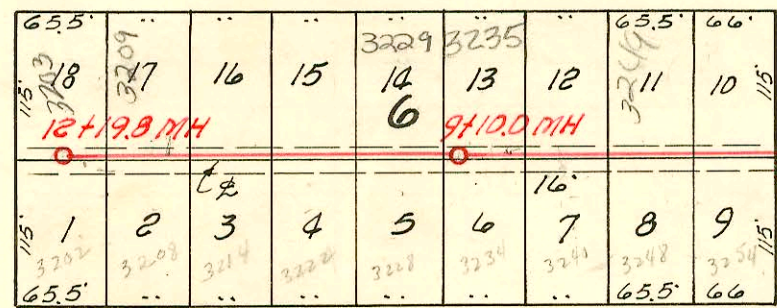 65.5' .. .. .. .. .. .. 65.5' 66'
3203 3209 3229 3235 3249
115' 18 17 16 15 14 13 12 11 10 115'
6
12+19.8 MH 9+10.0 MH
16'
115' 1 2 3 4 5 6 7 8 9 115'
3202 3208 3214 3222 3228 3234 3240 3248 3254
65.5' .. .. .. .. .. .. 65.5' 66